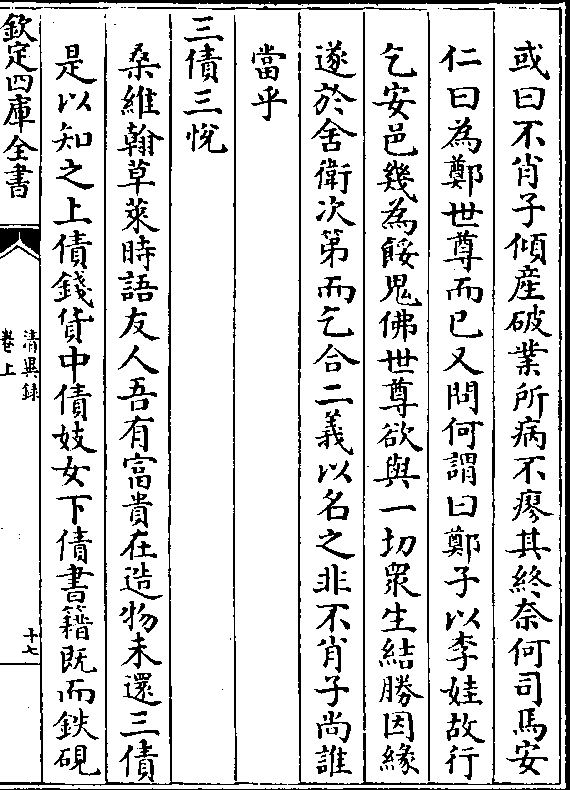 或曰不肖子傾産破業所病不瘳其終奈何司馬安
仁曰為鄭世尊而已又問何謂曰鄭子以李娃故行
乞安邑幾為餒鬼佛世尊欲與一切衆生結勝因縁
遂於舍衛次第而乞合二義以名之非不肖子尚誰
當乎
三債三悅
桑維翰草萊時語友人吾有富貴在造物未還三債
是以知之上債錢貨中債妓女下債書籍既而鉄硯
欽定四庫全書
清異録
卷上
十七